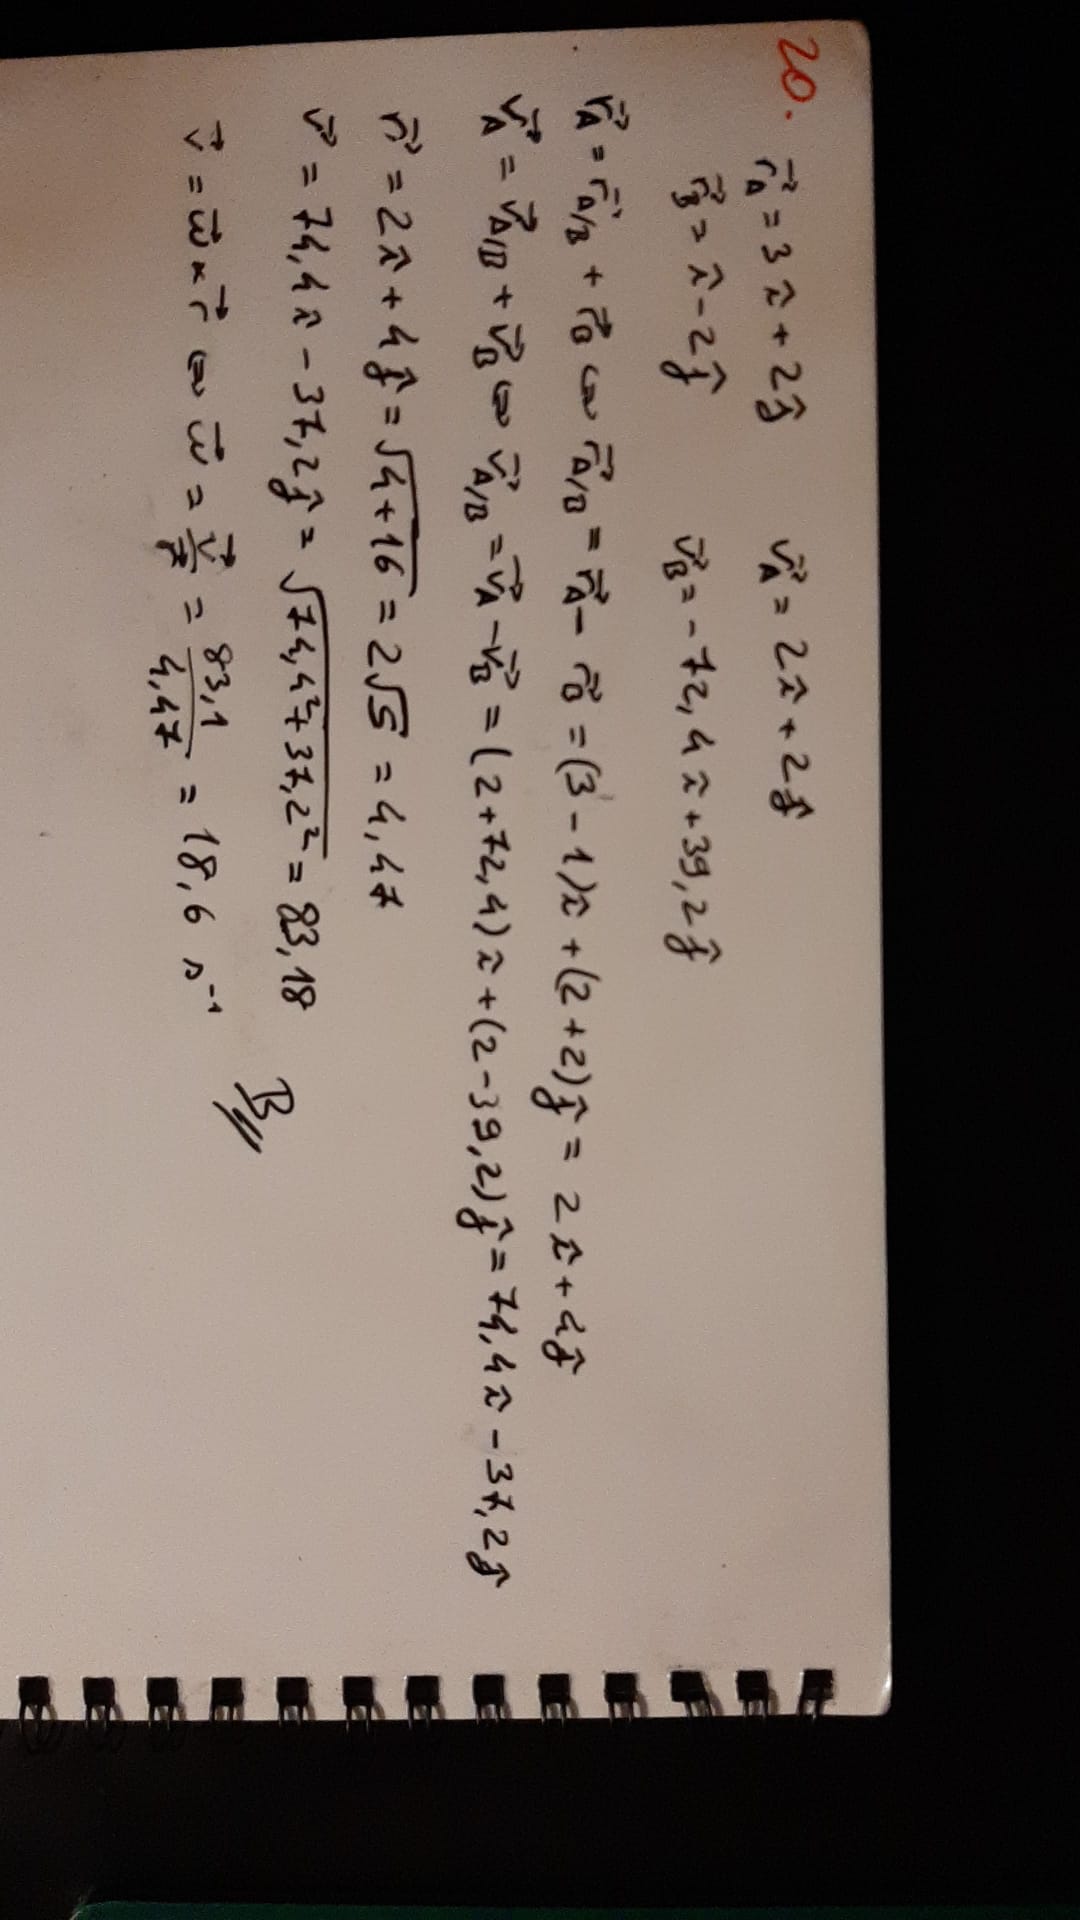 20. r⃗_A = 3î + 2ĵ    v⃗_A = 2î + 2ĵ
r⃗_B = î - 2ĵ    v⃗_B = -72,4î + 39,2ĵ
r⃗_A = r⃗_A/B + r⃗_B ⇔ r⃗_A/B = r⃗_A - r⃗_B = (3 - 1)î + (2 + 2)ĵ = 2î + 4ĵ
v⃗_A = v⃗_A/B + v⃗_B ⇔ v⃗_A/B = v⃗_A - v⃗_B = (2 + 72,4)î + (2 - 39,2)ĵ = 74,4î - 37,2ĵ
r⃗ = 2î + 4ĵ = √(4 + 16) = 2√5 = 4,47
v⃗ = 74,4î - 37,2ĵ = √(74,4² + 37,2²) = 83,18
v⃗ = ω⃗ × r⃗ ⇔ ω⃗ = v⃗/r⃗ = 83,1/4,47 = 18,6 s⁻¹    B